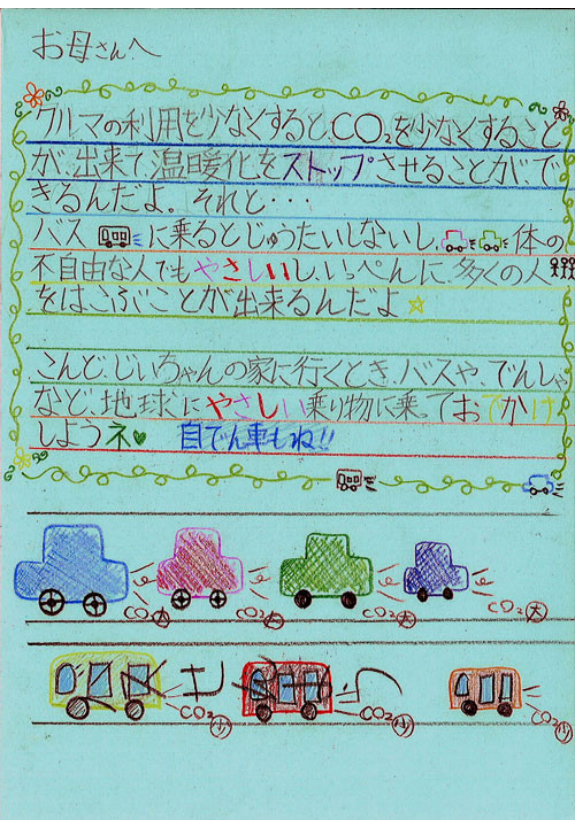 お母さんへ
クルマの利用を少なくすると、CO₂を少なくすること
が、出来て、温暖化をストップさせることが、で
きるんだよ。それと・・・
バスに乗るとじゅうたいしないし、体の
不自由な人でもやさしいし、いっぺんに、多くの人
をはこぶことが出来るんだよ☆
こんど、じいちゃんの家に行くとき、バスや、でんしゃ
など、地球にやさしい乗り物に乗っておでかけ
しようネ♥ 自でん車もね!!
CO₂大 CO₂大 CO₂大 CO₂大
CO₂少 CO₂少 CO₂少